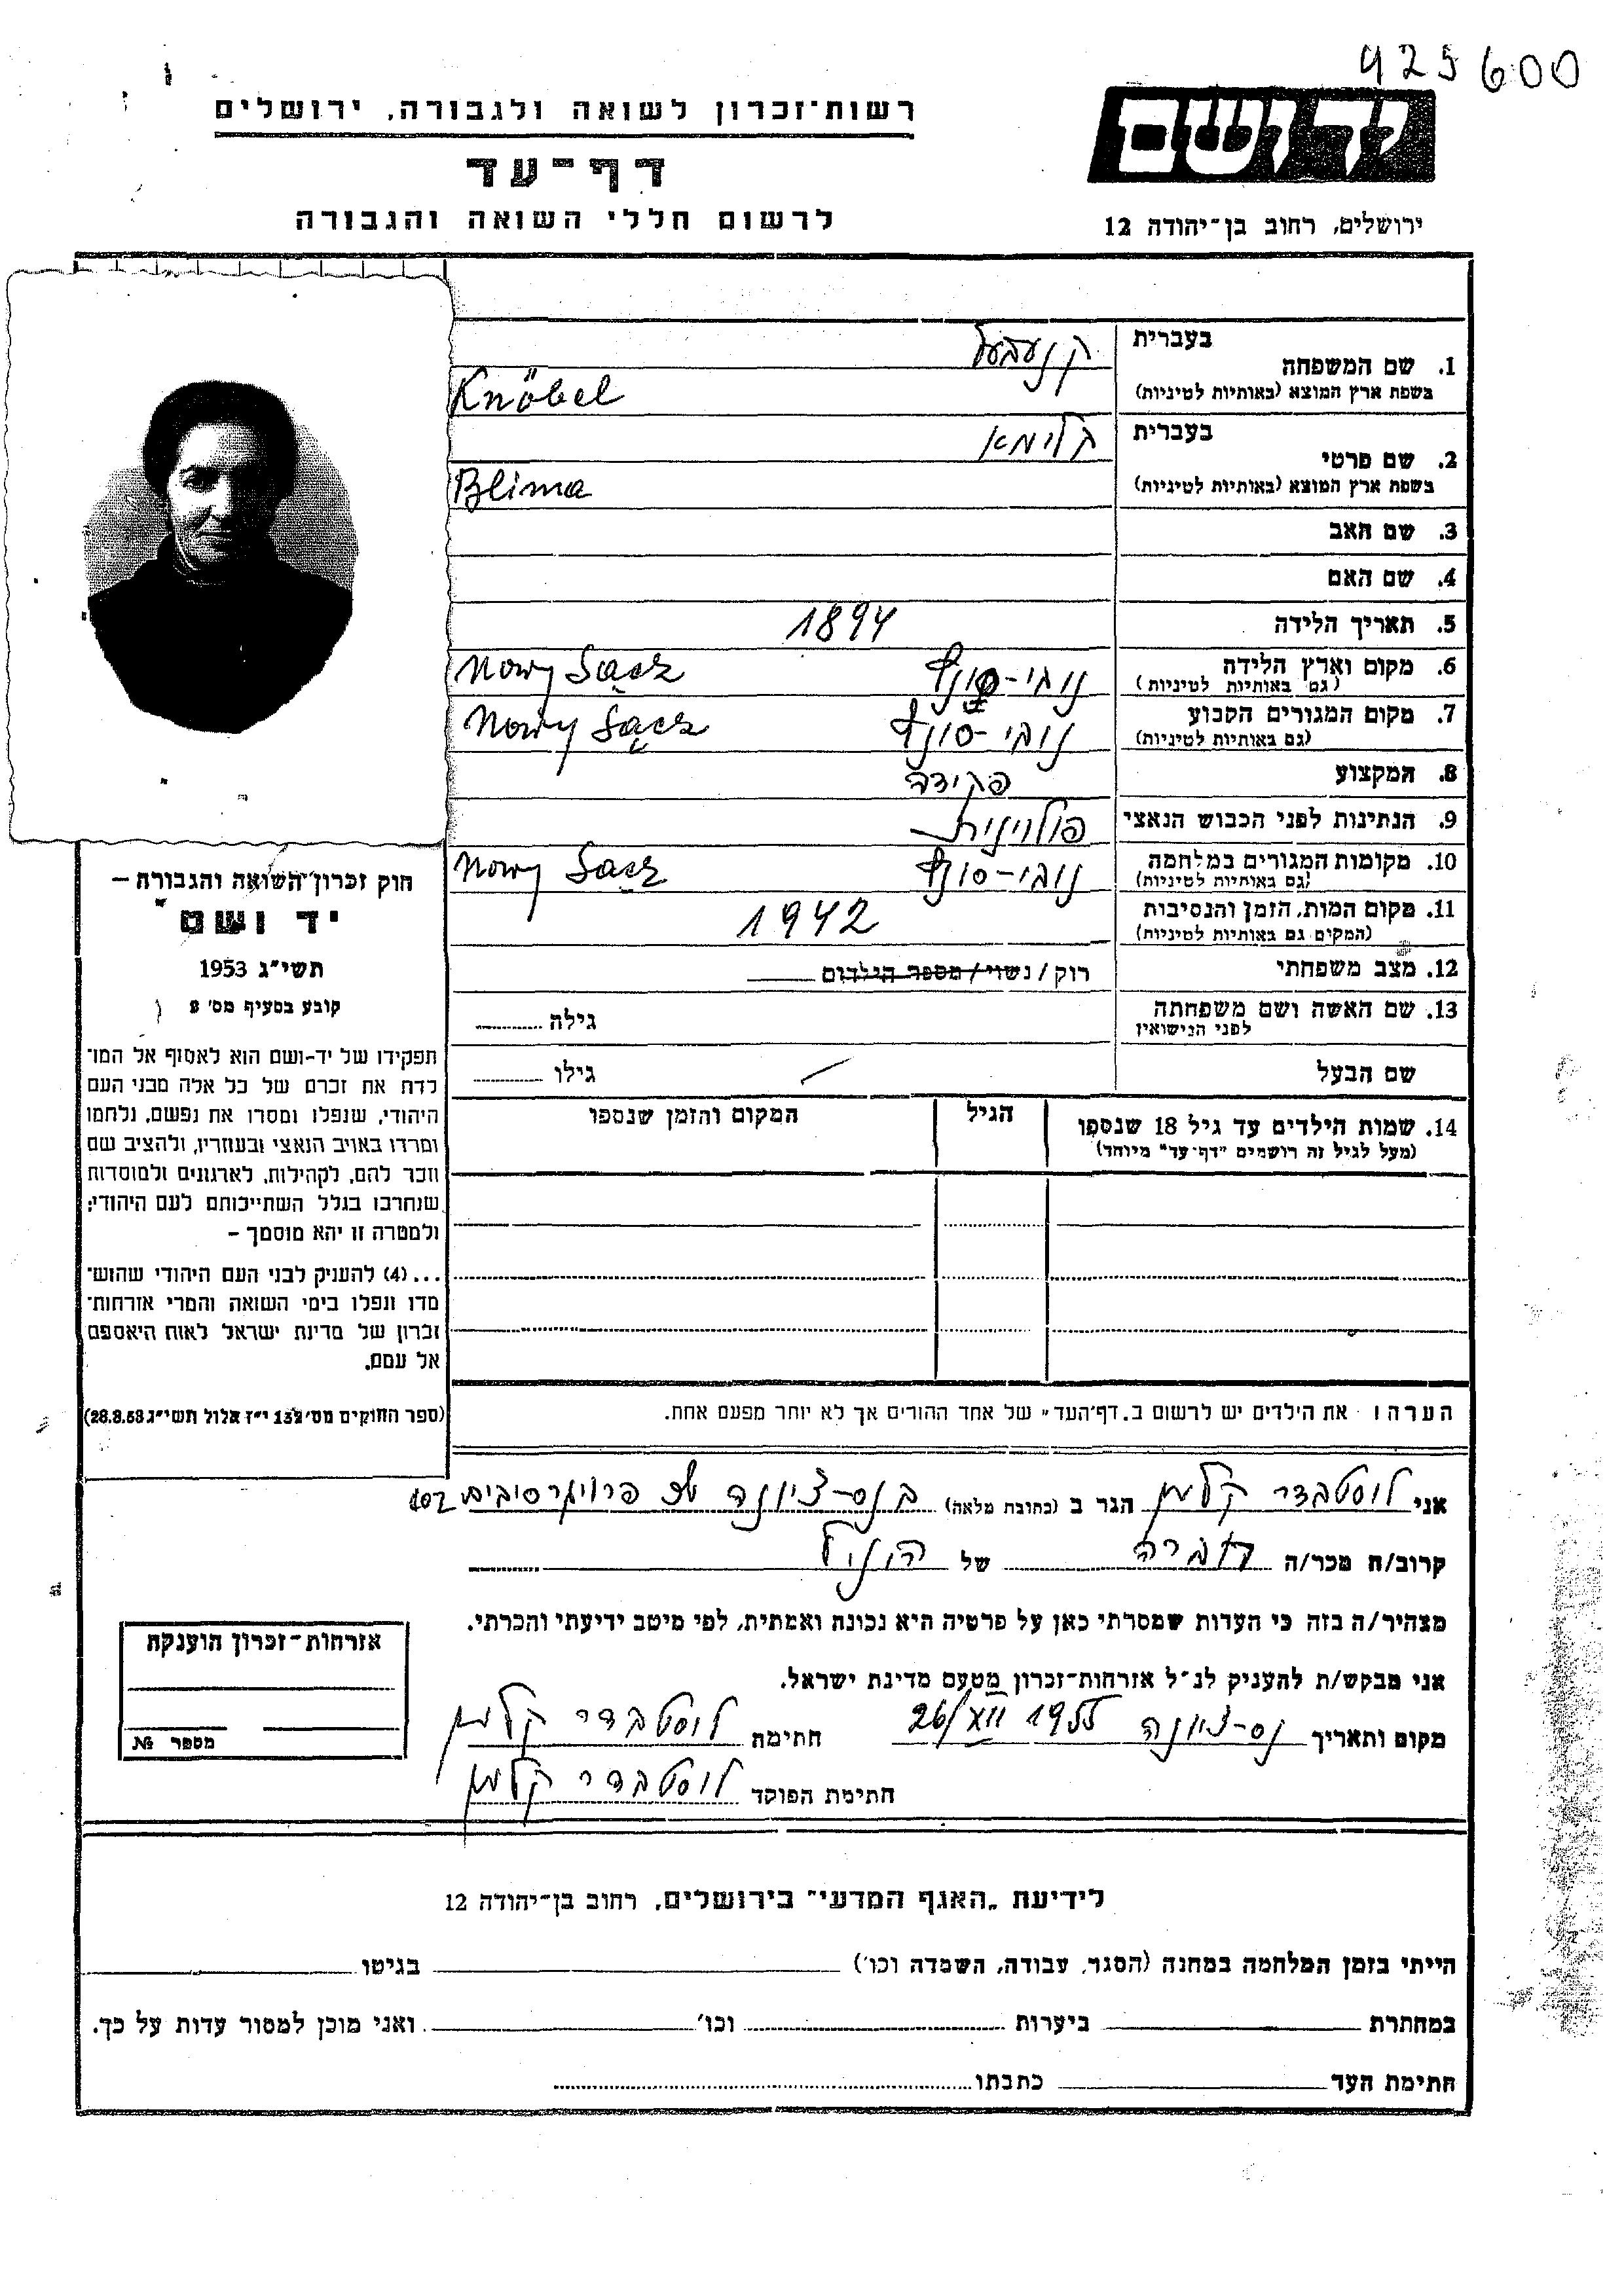 925600
רשות־זכרון לשואה ולגבורה, ירושלים
יד ושם
דף־עד
לרשום חללי השואה והגבורה
ירושלים, רחוב בן־יהודה 12
1. שם המשפחה בעברית קנעבעל
בשפת ארץ המוצא (באותיות לטיניות) Knöbel
2. שם פרטי בעברית בלימא
בשפת ארץ המוצא (באותיות לטיניות) Blima
3. שם האב
4. שם האם
5. תאריך הלידה 1894
6. מקום וארץ הלידה נובי-סונץ Nowy Sącz
(גם באותיות לטיניות)
7. מקום המגורים הקבוע נובי-סונץ Nowy Sącz
(גם באותיות לטיניות)
8. המקצוע פקידה
9. הנתינות לפני הכבוש הנאצי פולנית
10. מקומות המגורים במלחמה נובי-סונץ Nowy Sącz
(גם באותיות לטיניות)
11. מקום המות, הזמן והנסיבות 1942
(המקום גם באותיות לטיניות)
12. מצב משפחתי רוק / נשוי / מספר הילדים
13. שם האשה ושם משפחתה גילה
לפני הנישואין
שם הבעל גילו
14. שמות הילדים עד גיל 18 שנספו הגיל המקום והזמן שנספו
(מעל לגיל זה רושמים "דף־עד" מיוחד)
חוק זכרון השואה והגבורה –
יד ושם
תשי"ג 1953
קובע בסעיף מס' 2
תפקידו של יד-ושם הוא לאסוף אל המו־
לדת את זכרם של כל אלה מבני העם
היהודי, שנפלו ומסרו את נפשם, נלחמו
ומרדו באויב הנאצי ובעוזריו, ולהציב שם
וזכר להם, לקהילות, לארגונים ולמוסדות
שנחרבו בגלל השתייכותם לעם היהודי;
ולמטרה זו יהא מוסמך –
... (4) להעניק לבני העם היהודי שהוש־
מדו ונפלו בימי השואה והמרי אזרחות־
זכרון של מדינת ישראל לאות היאספם
אל עמם.
(ספר החוקים מס' 132 י"ז אלול תשי"ג 28.8.53)
הערה: את הילדים יש לרשום ב"דף־העד" של אחד ההורים אך לא יותר מפעם אחת.
אני לוסטבדר קלמן הגר ב (כתובת מלאה) בנס-ציונה 107
קרוב/ה מכר/ה של הנ"ל
מצהיר/ה בזה כי העדות שמסרתי כאן על פרטיה היא נכונה ואמתית, לפי מיטב ידיעתי והכרתי.
אני מבקש/ת להעניק לנ"ל אזרחות־זכרון מטעם מדינת ישראל.
מקום ותאריך נס-ציונה 26/XII 1955 חתימה לוסטבדר קלמן
חתימת הפוקד לוסטבדר קלמן
אזרחות־זכרון הוענקה
מספר №
לידיעת "האגף המדעי" בירושלים, רחוב בן־יהודה 12
הייתי בזמן המלחמה במחנה (הסגר, עבודה, השמדה וכו') בגיטו
במחתרת ביערות וכו' ואני מוכן למסור עדות על כך.
חתימת העד כתבתו